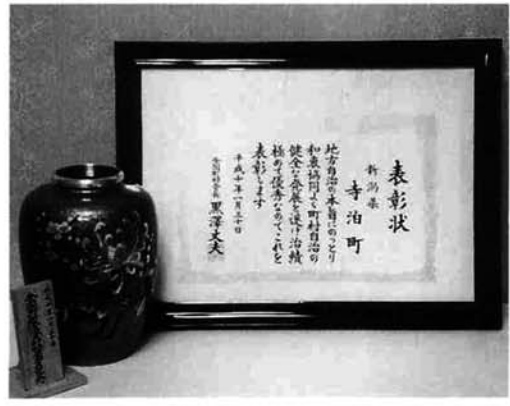 表彰状
新潟県
寺泊町
地方自治の本旨にのっとり
和衷協同よく町村自治の
健全な発展を遂げ治績
極めて優秀なのでこれを
表彰します
平成十年一月三十日
黒澤丈夫